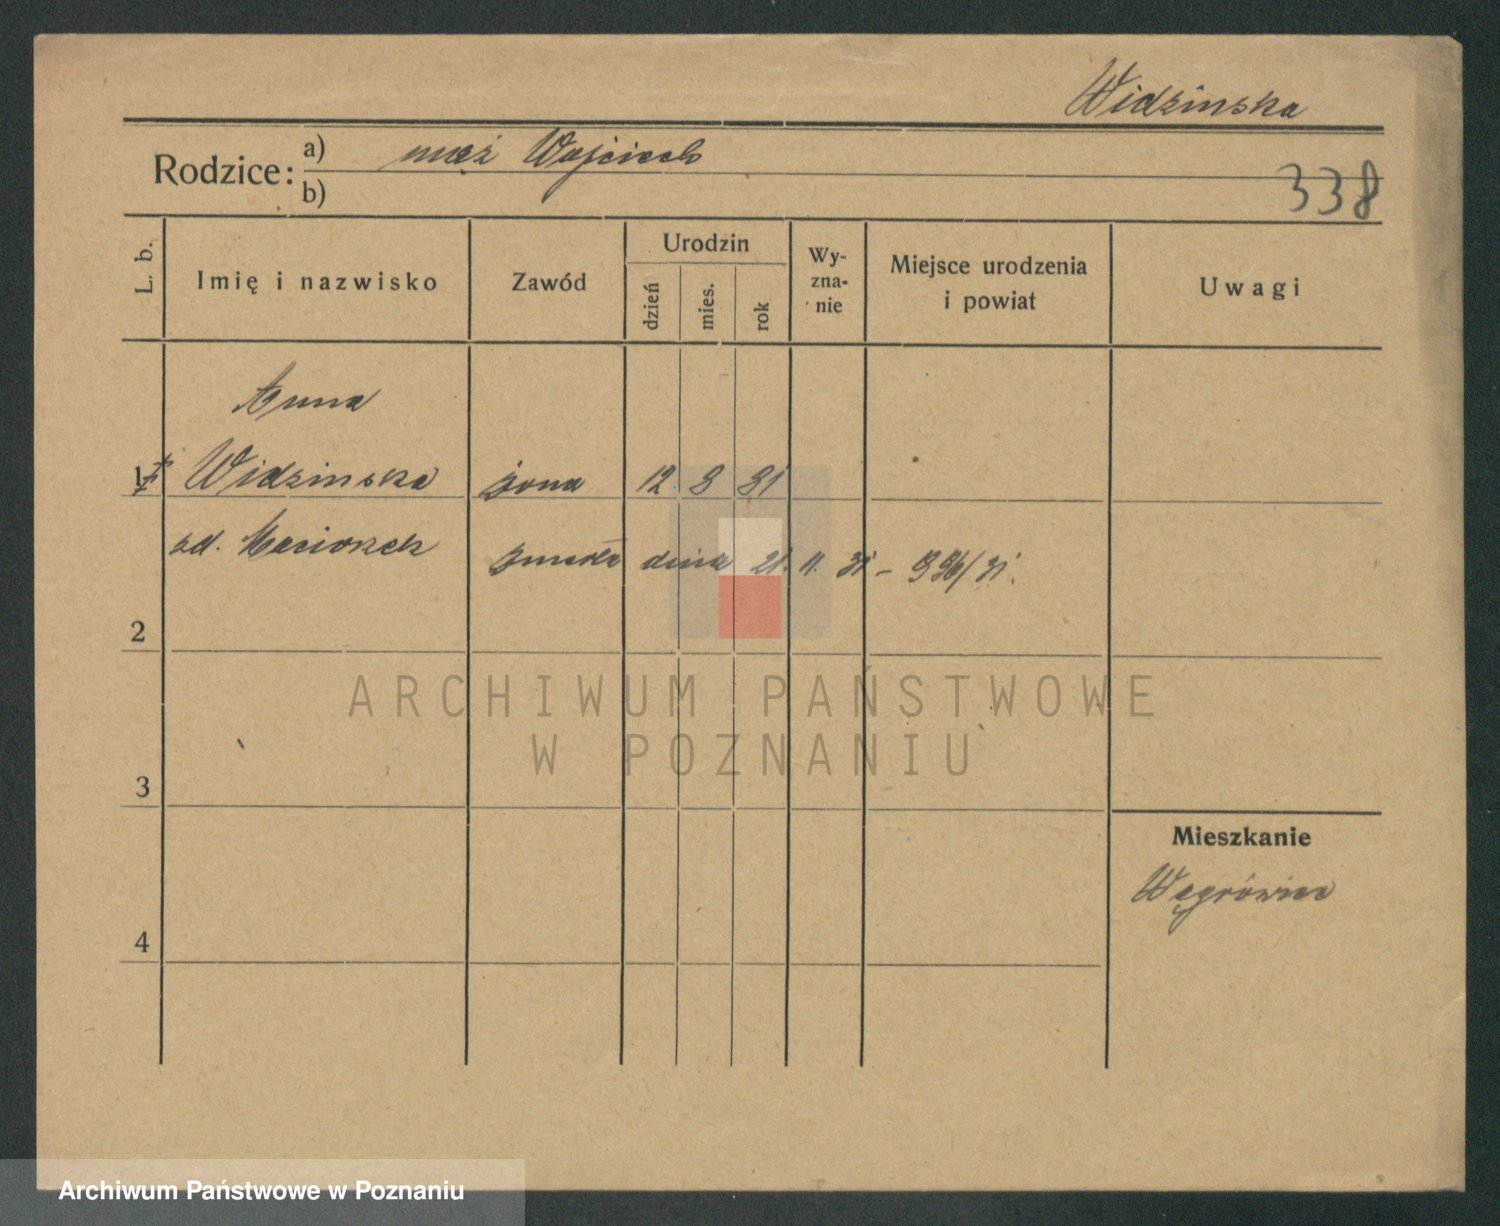 Widzinska
Rodzice:
a) mąż Wojciech
b)
338
L. b.
Imię i nazwisko
Zawód
Urodzin
dzień
mies.
rok
Wy-
zna-
nie
Miejsce urodzenia
i powiat
Uwagi
Anna
1 Widzinska żona 12 8 81
zd. Maciorek zmarła dnia 21. 11. 31
2
3
4
Mieszkanie
Wągrówiec
ARCHIWUM PAŃSTWOWE
W POZNANIU
Archiwum Państwowe w Poznaniu